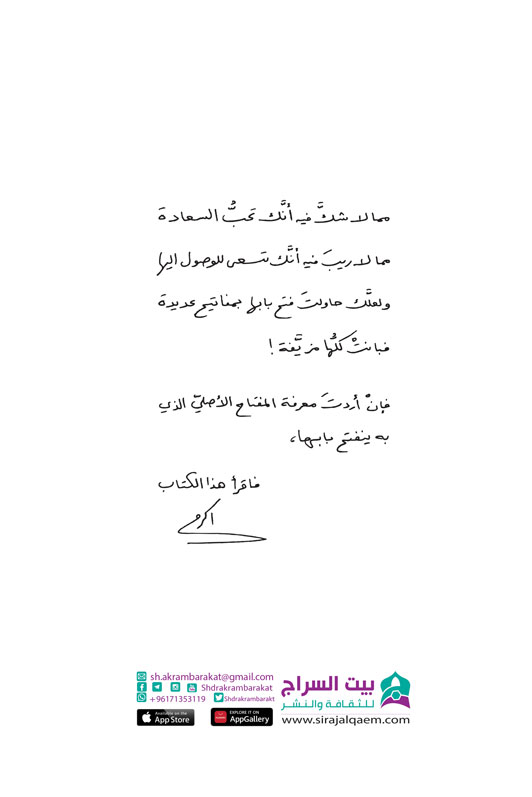 مما لا شكَّ فيه أنَّك تحبُّ السعادة
مما لا ريبَ فيه أنَّك تسعى للوصول إليها
ولعلَّك حاولتَ فتح بابها بمفاتيح عديدة
فبانتْ كلُّها مزيَّفة!
فإنْ أردتَ معرفة المفتاح الأصليّ الذي
به ينفتح بابها،
فاقرأ هذا الكتاب
اكرم
sh.akrambarakat@gmail.com
Shdrakrambarakat
+96171353119 Shdrakrambarakt
Available on the App Store
EXPLORE IT ON AppGallery
بيت السراج
للثقافة والنشر
www.sirajalqaem.com